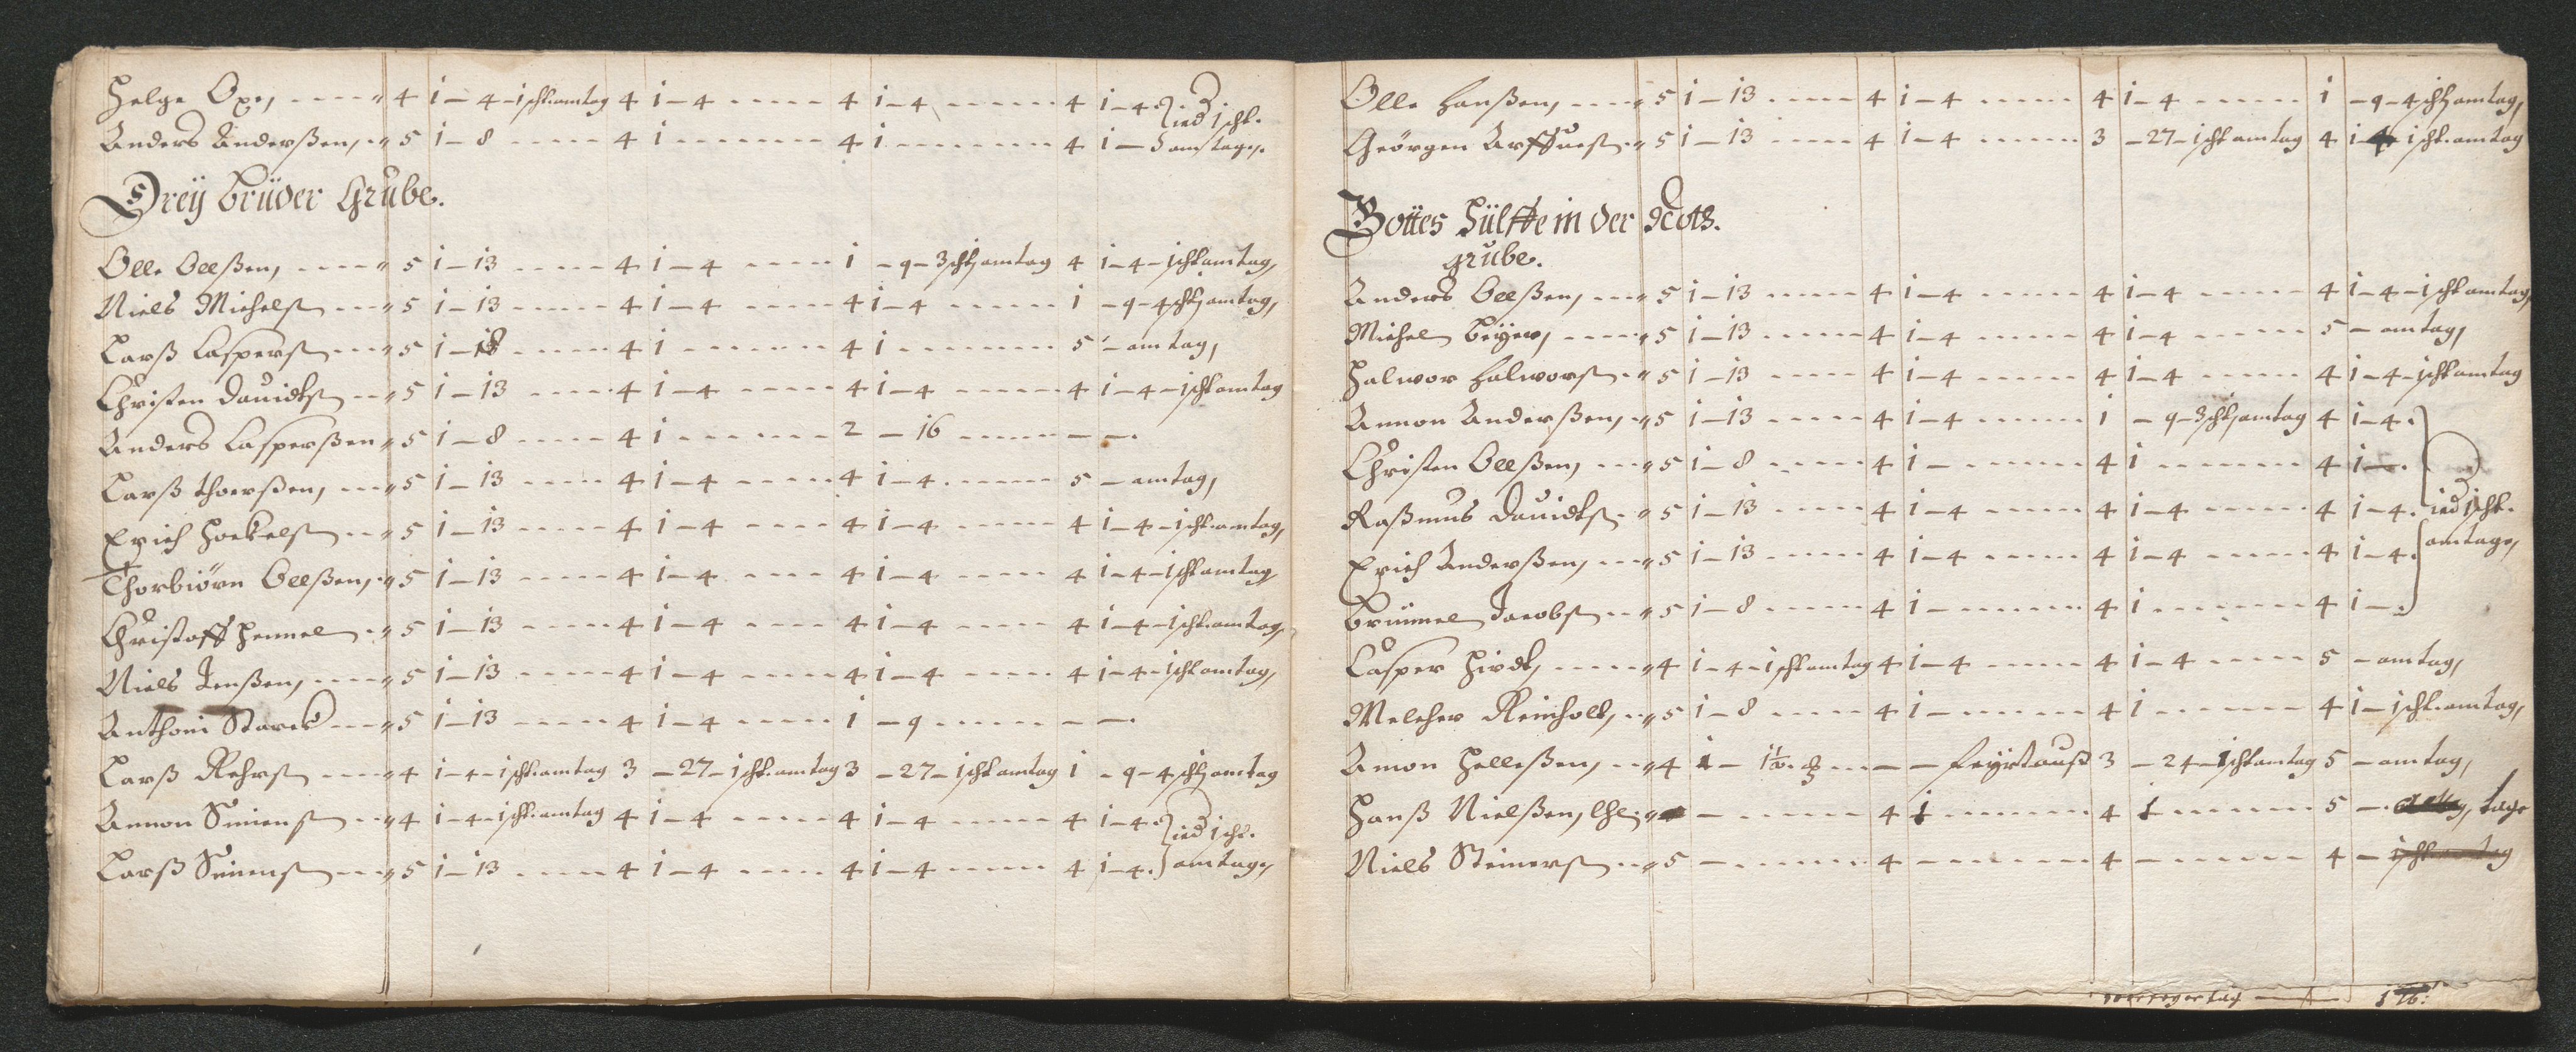 Helge Oxe, - - - - " 4 i - 4 - i schtamtag 4 i - 4 - - - - - 4 i - 4 - - - - - - 4 i - 4. ied i scht.
Anders Anderßen, - " 5 i - 8 - - - - - 4 i - - - - - - - 4 i - - - - - - - - 4 i - amtage.
Dreÿ Brüder Grube.
Olle Oelßen, - - - - " 5 i - i3 - - - - - 4 i - 4 - - - - - i - 9 - 3 schtz amtag 4 i - 4 - i schtamtag,
Niels Michelß - - - " 5 i - i3 - - - - - 4 i - 4 - - - - - 4 i - 4 - - - - - i - 9 - 4 schtz amtag,
Larß Casperß - - - " 5 i - i8 - - - - - 4 i - - - - - - 4 i - - - - - - - - 5 - amtag,
Christen Dauidtß - - " 5 i - i3 - - - - - 4 i - 4 - - - - - 4 i - 4 - - - - - - 4 i - 4 - i schtamtag
Anders Casperßen " 5 i - 8 - - - - - 4 i - - - - - - 2 - i6 - - - - - - -.
Larß thoerßen, - - - " 5 i - i3 - - - - - 4 i - 4 - - - - - 4 i - 4 - - - - - 5 - amtag,
Erich Hoekelß - - " 5 i - i3 - - - - - 4 i - 4 - - - - - 4 i - 4 - - - - - 4 i - 4 - i scht. amtag,
Thorbiörn Oelßen, - " 5 i - i3 - - - - - 4 i - 4 - - - - - 4 i - 4 - - - - - 4 i - 4 - i schtamtag
Christoff Hemmel - " 5 i - i3 - - - - - 4 i - 4 - - - - - 4 i - 4 - - - - - 4 i - 4 - i scht. amtag,
Niels Jenßen, - - - - " 5 i - i3 - - - - - 4 i - 4 - - - - - 4 i - 4 - - - - - 4 i - 4 - i schtamtag,
Anthoni Starck - - - " 5 i - i3 - - - - - 4 i - 4 - - - - - i - 9 - - - - - - -.
Larß Rehrß - - - - " 4 i - 4 - i scht. amtag 3 - 27 - i scht. amtag 3 - 27 - i schtamtag i - 9 - 4 schtz amtag
Amon Simenß - - " 4 i - 4 - i scht. amtag 4 i - 4 - - - - - 4 i - 4 - - - - - 4 i - 4. ied i scht.
Larß Simenß - - - " 5 i - i3 - - - - - 4 i - 4 - - - - - 4 i - 4 - - - - - 4 i - 4. amtage,
Olle Hanßen, - - - - " 5 i - i3 - - - - - 4 i - 4 - - - - - 4 i - 4 - - - - - i - 9 - 4 schtz amtag,
Geörgen - " 5 i - i3 - - - - - 4 i - 4 - - - - - 3 - 27 - i scht amtag 4 i - 4 - i scht. amtag
Gottes Hülffe in der Noth.
grube.
Anders Oelßen, - - - " 5 i - i3 - - - - - 4 i - 4 - - - - - 4 i - 4 - - - - - 4 i - 4 - i scht amtag,
Michel Beÿer, - - - - " 5 i - i3 - - - - - 4 i - 4 - - - - - 4 i - 4 - - - - - 5 - amtag,
Halwor Halworß - " 5 i - i3 - - - - - 4 i - 4 - - - - - 4 i - 4 - - - - - 4 i - 4 - i schtamtag
Amon Anderßen, - " 5 i - i3 - - - - - 4 i - 4 - - - - - i - 9 - 3 schtz amtag 4 i - 4.
Christen Oelßen, - - " 5 i - 8 - - - - - 4 i - - - - - - 4 i - - - - - - - 4 i -.
Raßmus Dauidtß - " 5 i - i3 - - - - - 4 i - 4 - - - - - 4 i - 4 - - - - - 4 i - 4. ied i scht.
Erich Anderßen, - - " 5 i - i3 - - - - - 4 i - 4 - - - - - 4 i - 4 - - - - - 4 i - 4. amtage,
Brummel Jacobß - - " 5 i - 8 - - - - - 4 i - - - - - - 4 i - - - - - - - 4 i -.
Casper Hirdt, - - - - " 4 i - 4 - i schtamtag 4 i - 4 - - - - - 4 i - 4 - - - - - 5 - amtag,
Melcher Reinholt, - " 5 i - 8 - - - - - 4 i - - - - - - 4 i - - - - - - - 4 i - i scht. amtag,
Amon Helleßen, - - " 4 i - i½ - - - - 3 - 24 - i schtamtag 5 - amtag,
Hanß Nielßen, - - - - - - 4 i - - - - - - 4 i - - - - - - 5 - tage
Niels Steinerß - - " 5 - - - - - - 4 - - - - - - 4 - - - - - - 4 - i scht amtag